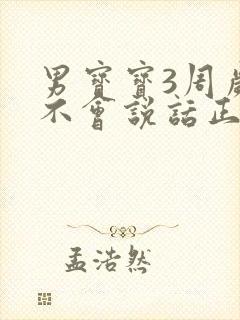 男寶寶3周歲
不會説話正
孟浩然